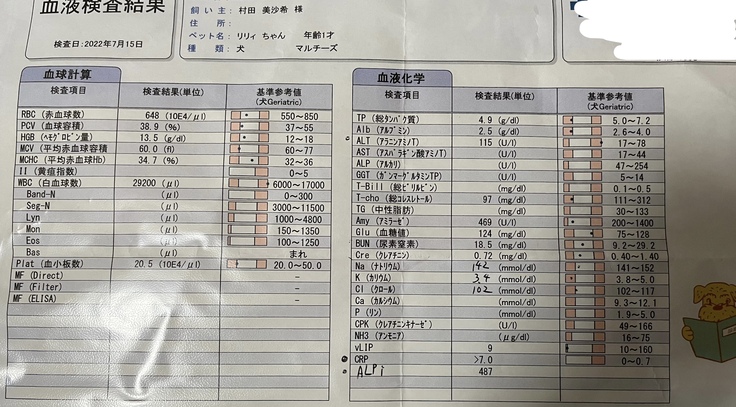 血液検査結果
検査日:2022年7月15日
飼い主: 村田 美沙希 様
住 所:
ペット名: リリィ ちゃん 年齢1才
種 類: 犬 マルチーズ
血球計算
検査項目 検査結果(単位) 基準参考値(犬Geriatric)
RBC (赤血球数) 648 (10E4/μl) 550~850
PCV (血球容積) 38.9 (%) 37~55
HGB (ヘモグロビン量) 13.5 (g/dl) 12~18
MCV (平均赤血球容積 60.0 (fl) 60~77
MCHC (平均赤血球Hb) 34.7 (%) 32~36
II (黄疸指数) 0~5
WBC (白血球数) 29200 (μl) 6000~17000
Band-N (μl) 0~300
Seg-N (μl) 3000~11500
Lyn (μl) 1000~4800
Mon (μl) 150~1350
Eos (μl) 100~1250
Bas (μl) まれ
Plat (血小板数) 20.5 (10E4/μl) 20.0~50.0
MF (Direct) -
MF (Filter) -
MF (ELISA) -
血液化学
検査項目 検査結果(単位) 基準参考値(犬Geriatric)
TP (総タンパク質) 4.9 (g/dl) 5.0~7.2
Alb (アルブミン) 2.5 (g/dl) 2.6~4.0
ALT (アラニンアミノT) 115 (U/l) 17~78
AST (アスパラギン酸アミノT) (U/l) 17~44
ALP (アルカリ) (U/l) 47~254
GGT (ガンマーグルタミンTP) (U/l) 5~14
T-Bill (総ビリルビン) (mg/dl) 0.1~0.5
T-cho (総コレステロール) 97 (mg/dl) 111~312
TG (中性脂肪) (mg/dl) 30~133
Amy (アミラーゼ) 469 (U/l) 200~1400
Glu (血糖値) 124 (mg/dl) 75~128
BUN (尿素窒素) 18.5 (mg/dl) 9.2~29.2
Cre (クレアチニン) 0.72 (mg/dl) 0.40~1.40
Na (ナトリウム) 142 (mmol/dl) 141~152
K (カリウム) 3.4 (mmol/dl) 3.8~5.0
Cl (クロール) 102 (mmol/dl) 102~117
Ca (カルシウム) (mmol/dl) 9.3~12.1
P (リン) (mmol/dl) 1.9~5.0
CPK (クレアチニンキナーゼ) (U/l) 49~166
NH3 (アンモニア) (μg/dl) 16~75
vLIP 9 10~160
CRP >7.0 0~0.7
ALPi 487